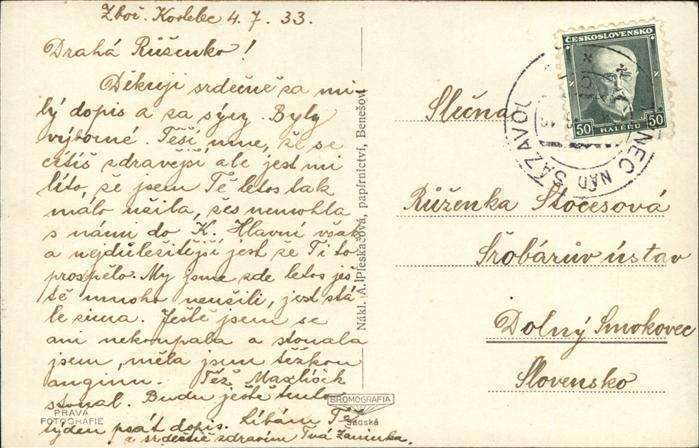 Zboř. Kostelec 4. 7. 33.
Drahá Růženko!
Děkuji srdečně za mi
lý dopis a za sýry. Byly
výborné. Těší mne, že se
cítíš zdravější ale jest mi
líto, že jsem Tě letos tak
málo užila, žes nemohla
s námi do K. Hlavní však
a nejdůležitější jest že Ti to
prospělo. My jsme zde letos ješ
tě mnoho neužili, jest stá
le zima. Ještě jsem se
ani nekoupala a stonala
jsem, měla jsem těžkou
anginu. Též
stonal. Budu ještě tento
týden psát dopis. Líbám Tě
a srdečně zdravím Tvá
PRAVÁ
FOTOGRAFIE
Nákl. A. Přeskačová, papírnictví, Benešov
BROMOGRAFIA
Sadská
ČESKOSLOVENSKO
50 HALÉŘŮ 50
NEC NAD SÁZAVOU
Slečna
Růženka Stočesová
Šrobárův ústav
Dolný Smokovec
Slovensko